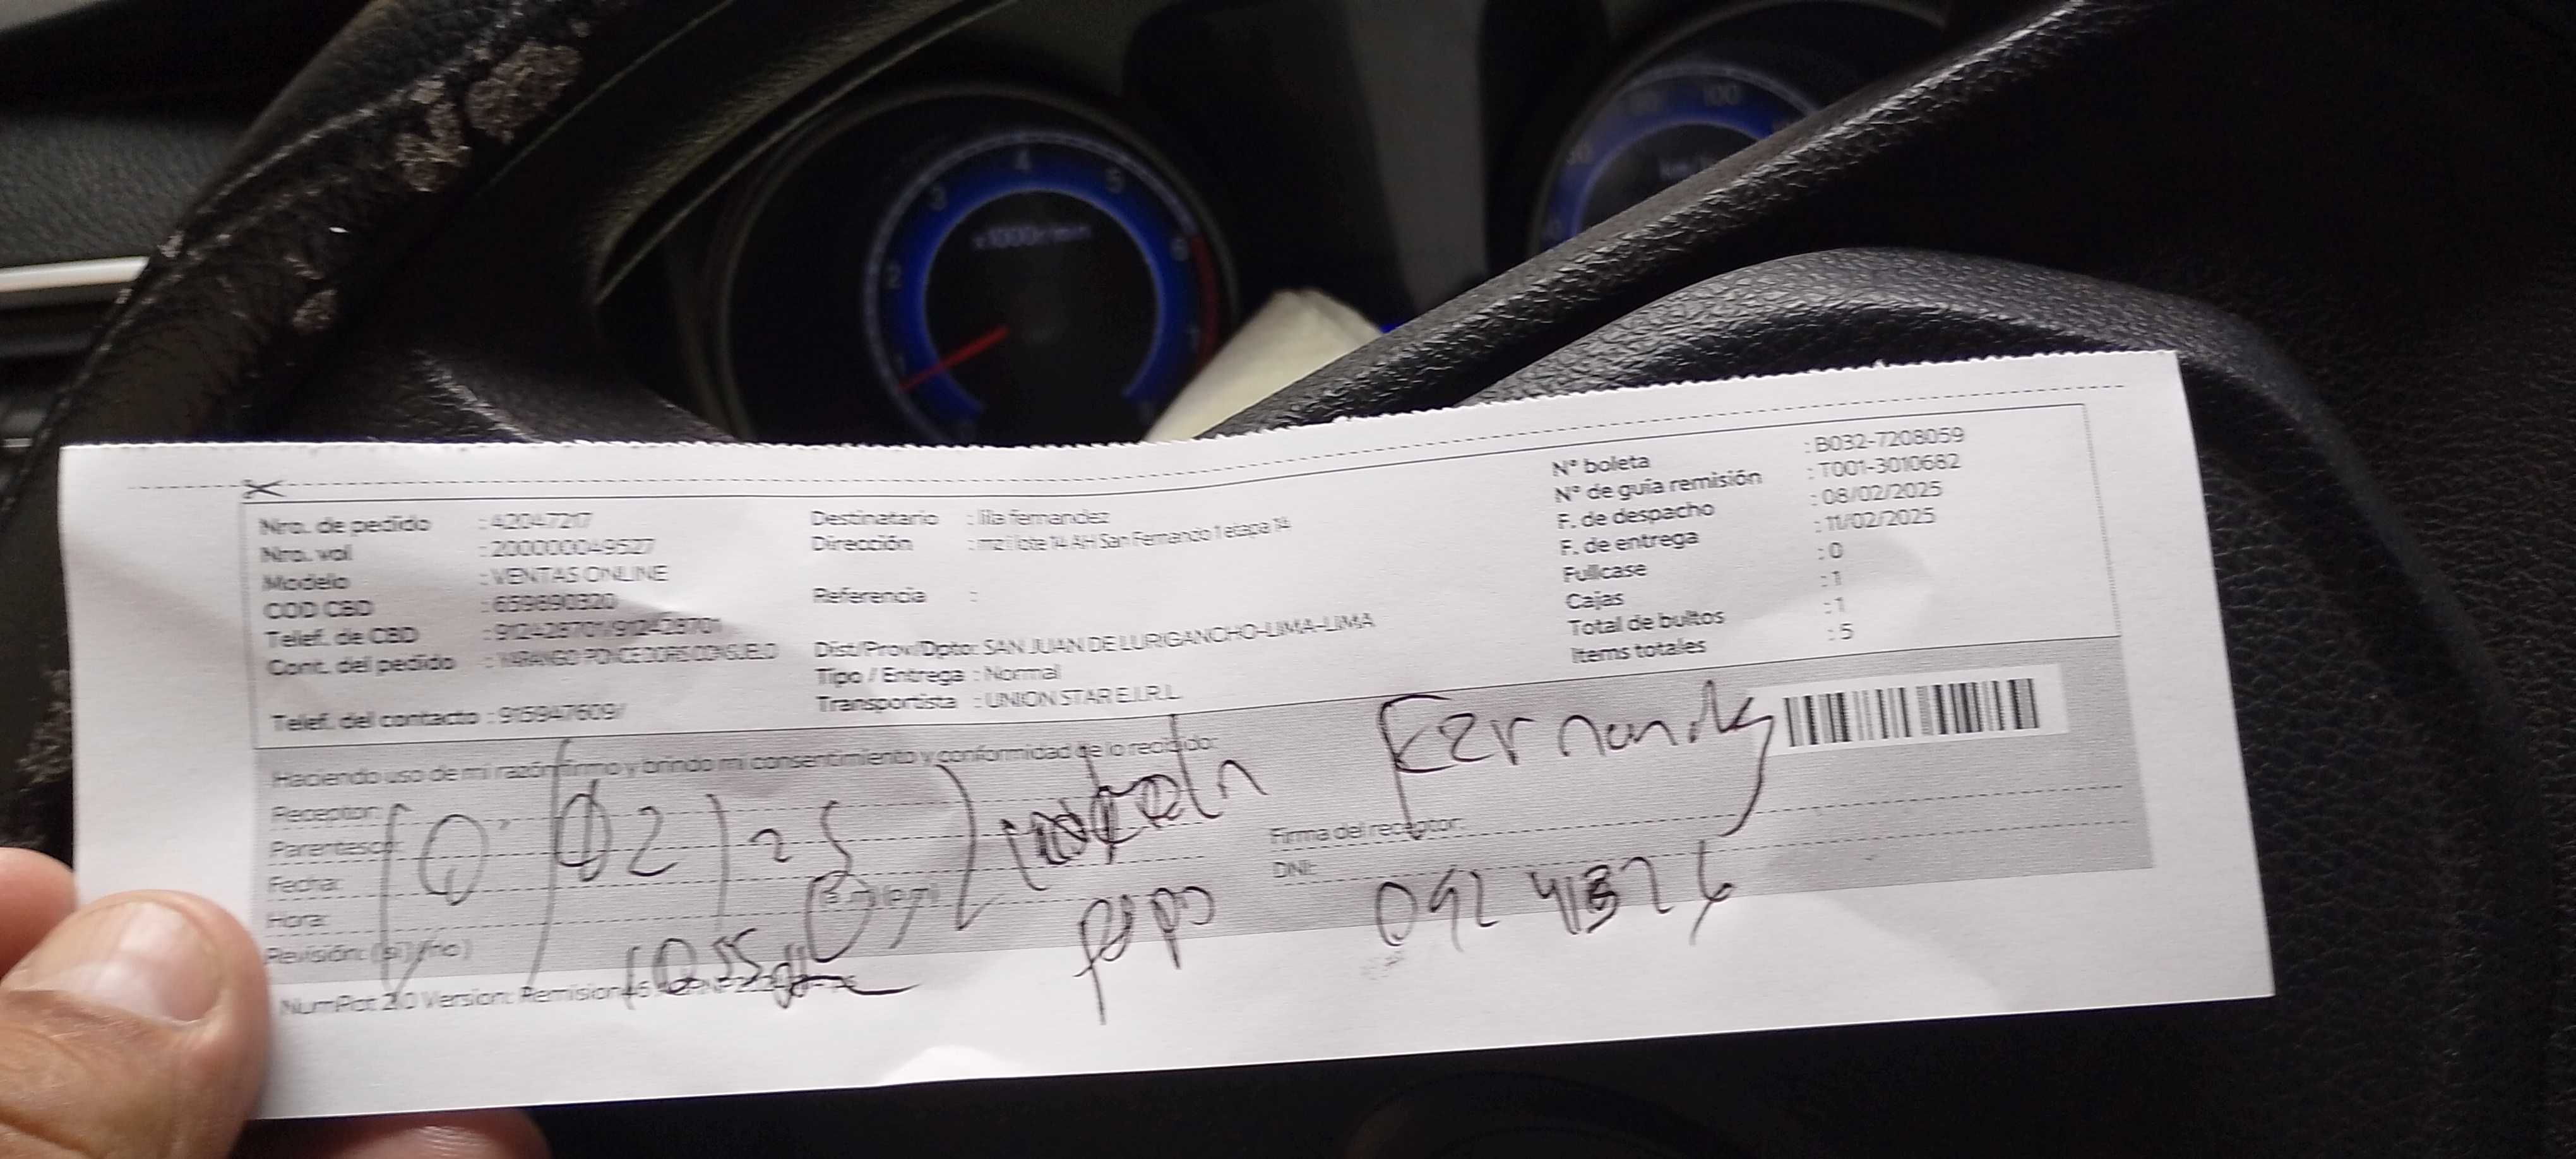 Nro. de pedido : 42047217
Nro. val : 200000049527
Modelo : VENTAS ONLINE
COD CBD : 659890320
Telef. de CBD : 912428701/912428701
Cont. del pedido : YARANGO PONCE DORIS CONSUELO
Telef. del contacto : 915947609/
Destinatario : lila fernandez
Dirección : mz i lote 14 AH San Fernando 1 etapa 14
Referencia :
Dist/Prov/Dpto: SAN JUAN DE LURIGANCHO-LIMA-LIMA
Tipo / Entrega : Normal
Transportista : UNION STAR E.I.R.L
N° boleta : B032-7208059
N° de guía remisión : T001-3010682
F. de despacho : 08/02/2025
F. de entrega : 11/02/2025
Fullcase : 0
Cajas : 1
Total de bultos : 1
Items totales : 5
Haciendo uso de mi razón firmo y brindo mi consentimiento y conformidad de lo recibido:
Receptor:
Parentesco:
Fecha:
Hora:
Revisión: (si) (no)
02 25
Fernandez
Firma del receptor:
DNI:
papa
NumPot 2.0 Version: Remision
x1000r/min
1 2 3 4 5 6 7
100